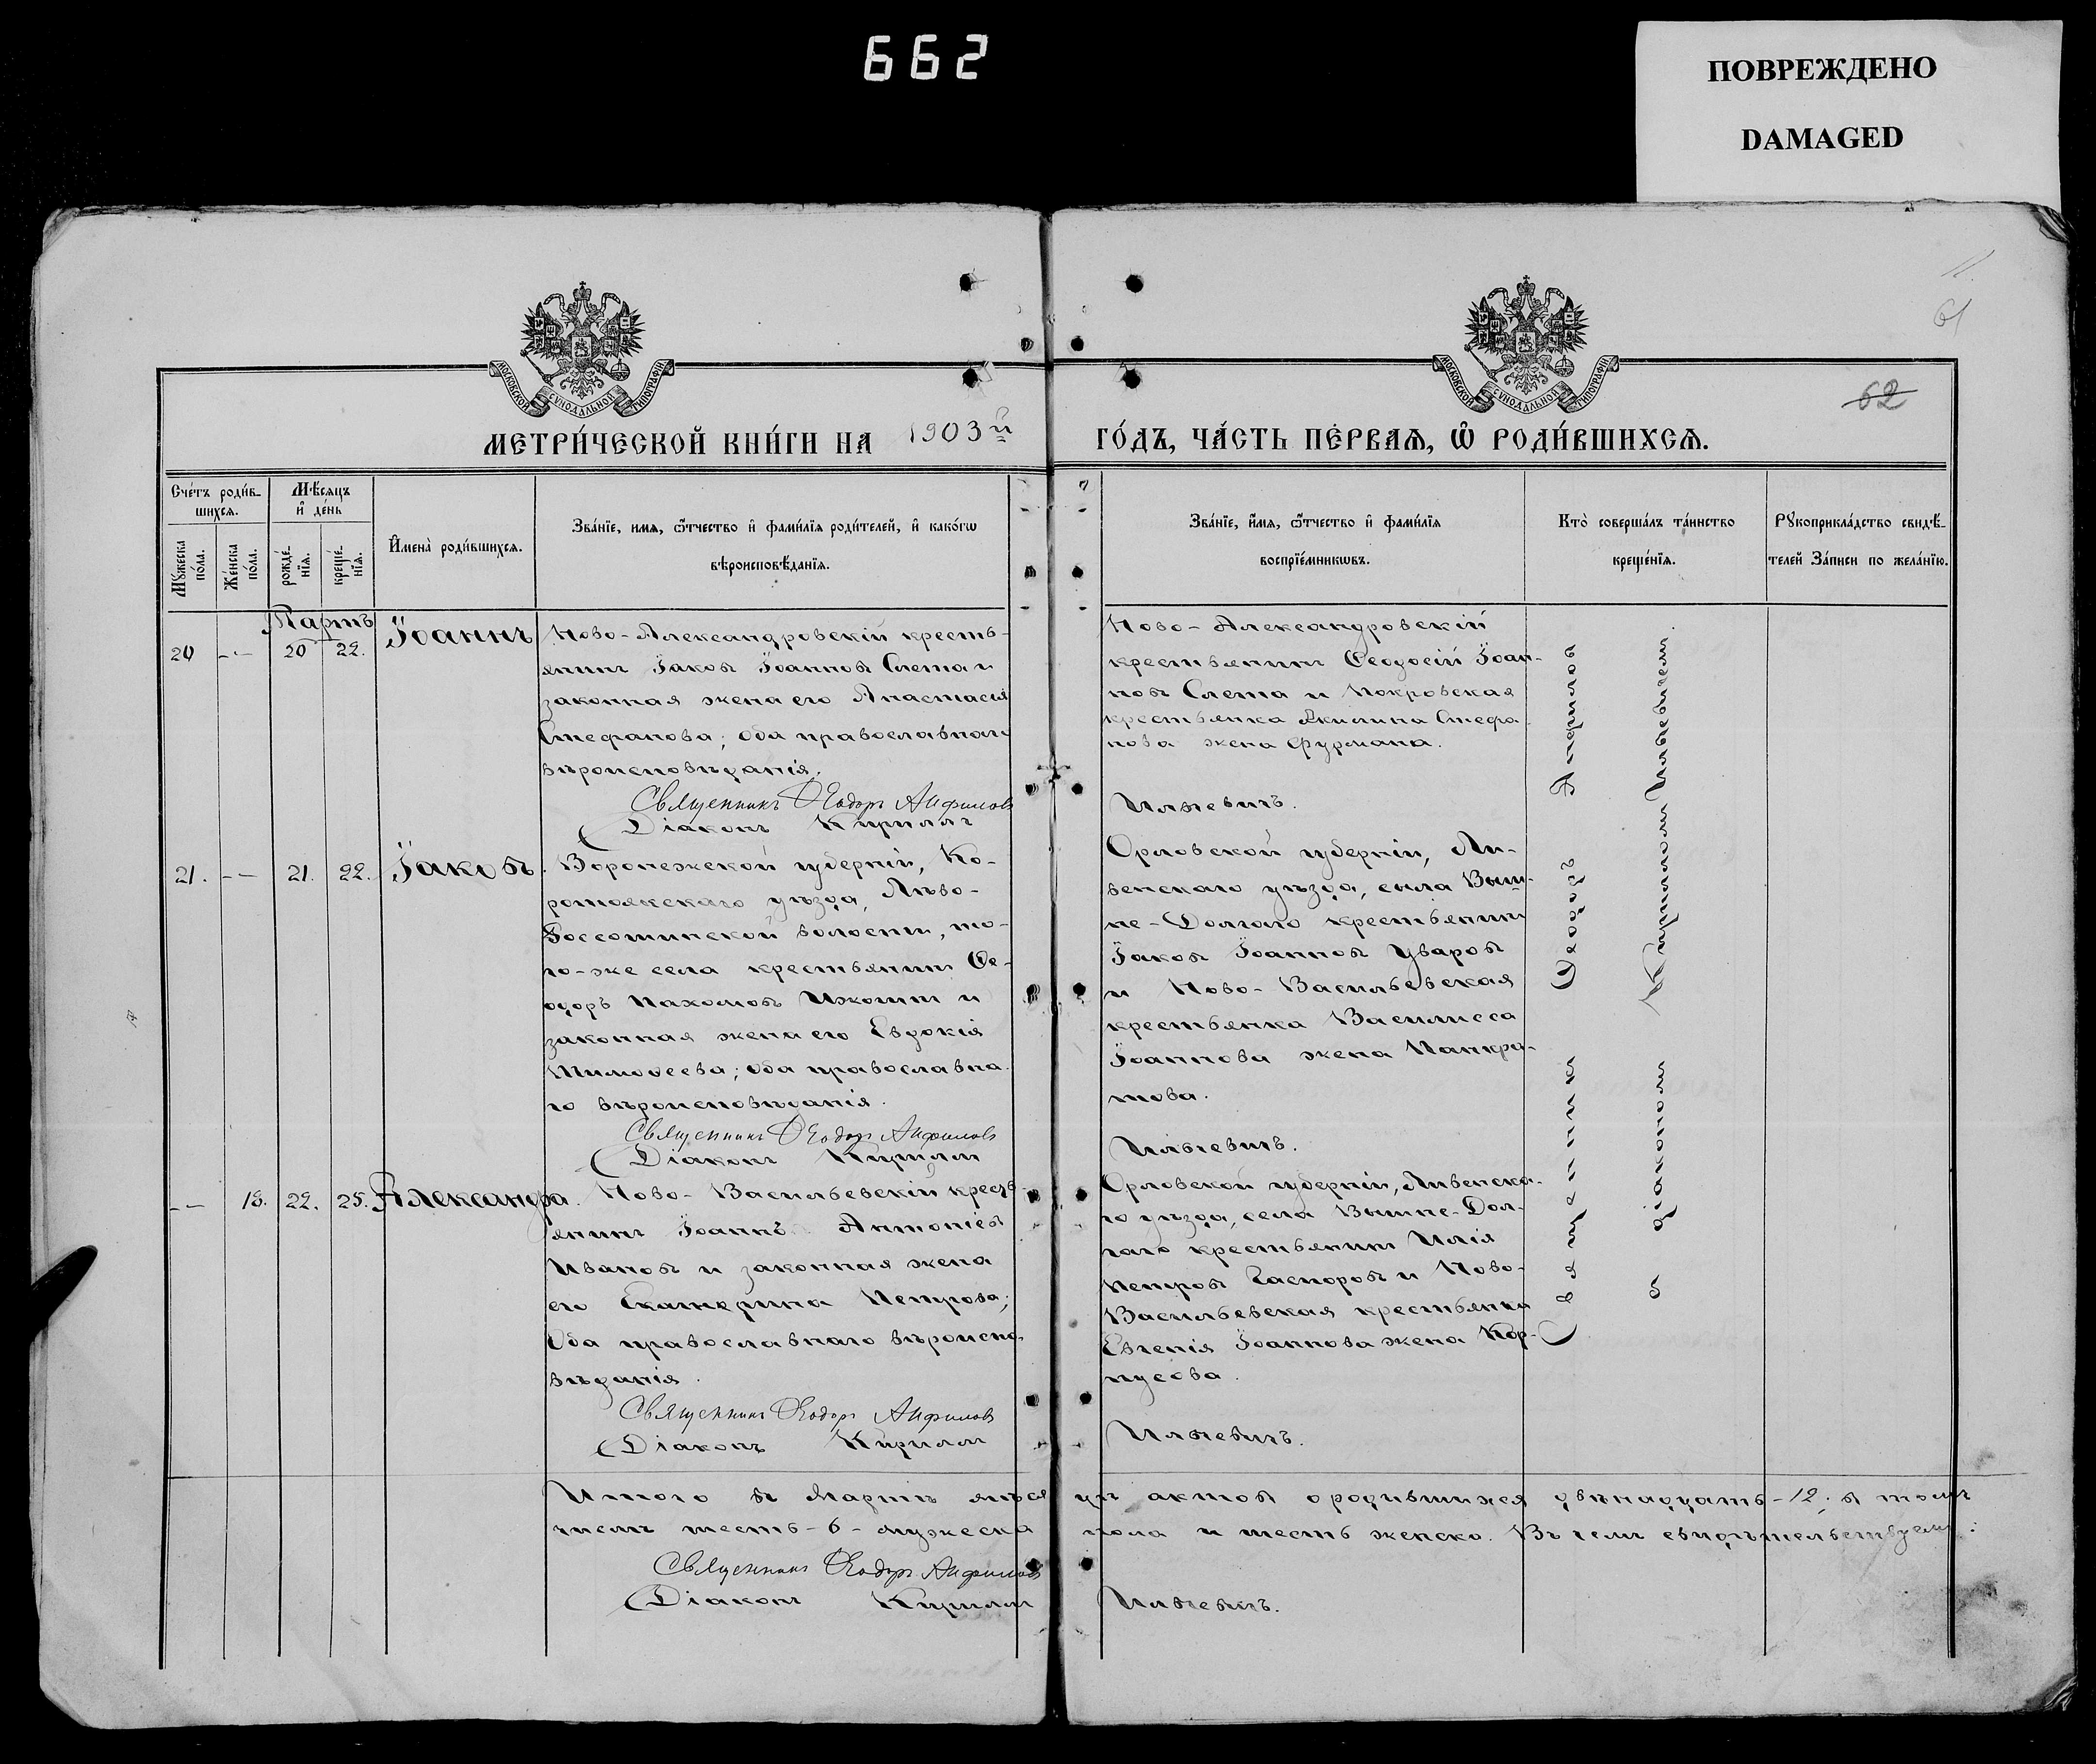 662
ПОВРЕЖДЕНО
DAMAGED
61
62
МОСКОВСКОЙ СѴНОДАЛЬНОЙ ТИПОГРАФІИ
МОСКОВСКОЙ СѴНОДАЛЬНОЙ ТИПОГРАФІИ
МЕТРИ́ЧЕСКОЙ КНИ́ГИ НА 1903й ГО́ДЪ, ЧА́СТЬ ПЕ́РВАѦ, Ѡ РОДИ́ВШИХСѦ.
Сче́тъ роди́в-
шихсѧ.
Мꙋ́жеска по́ла.
Же́нска по́ла.
Мѣ́сяцъ
и҆ де́нь
рожде́-
нїѧ.
креще́-
нїѧ.
И҆мена̀ роди́вшихсѧ.
Зва́нїе, и҆мѧ, ѻ҆́тчество и҆ фами́лїѧ роди́телей, и҆ како́гѡ
вѣроисповѣ́данїѧ.
Зва́нїе, и҆́мѧ, ѻ҆́тчество и҆ фами́лїѧ
воспрїе́мникѡвъ.
Кто̀ соверша́лъ та́инство
креще́нїѧ.
Рꙋкоприкла́дство свидѣ́-
телей За́писи по жела́нїю.
Мартъ
20 -- 20 22. Іоаннъ
Ново-Александровскій кресть-
янинъ Іаковъ Іоанновъ Слета и
законная жена его Анастасія
Стефанова; оба православнаго
вѣроисповѣданія.
Священникъ Ѳеодоръ Анфиловъ
Діаконъ Кириллъ Ильевичъ.
Ново-Александровскій
крестьянинъ Ѳеодосій Іоан-
новъ Слета и Покровская
крестьянка Акилина Стефа-
нова жена Фурмана.
21. -- 21. 22. Іаковъ.
Воронежской губерніи, Ко-
ротоякскаго уѣзда, Лѣво-
Россошинской волости, то-
го-же села крестьянинъ Ѳе-
одоръ Пахомовъ Ижокин и
законная жена его Евдокія
Тимоѳеева; оба православна-
го вѣроисповѣданія.
Священникъ Ѳеодоръ Анфиловъ
Діаконъ Кириллъ Ильевичъ.
Орловской губерніи, Ли-
венскаго уѣзда, села Выш-
не-Долгаго крестьянинъ
Іаковъ Іоанновъ Уваровъ
и Ново-Васильевская
крестьянка Василисса
Іоаннова жена Панкра-
това.
-- 18. 22. 25. Александра.
Ново-Васильевскій кресть-
янинъ Іоаннъ Антоніевъ
Ивановъ и законная жена
его Екатерина Петрова;
Оба православнаго вѣроиспо-
вѣданія.
Священникъ Ѳеодоръ Анфиловъ
Діаконъ Кириллъ Ильевичъ.
Орловской губерніи, Ливенска-
го уѣзда, села Вышне-Дол-
гаго крестьянинъ Илія
Петровъ Гаспоровъ и Ново-
Васильевская крестьянка
Евгенія Іоаннова жена Кор-
нусова.
Священникъ Ѳеодоръ Анфиловъ
съ діакономъ Кирилломъ Ильевичемъ.
Итого въ Мартѣ мѣсяцѣ актовъ о родившихся двѣнадцать-12; въ томъ
числѣ шесть-6-мужеска пола и шесть женска. Въ чемъ свидѣтельствуемъ:
Священникъ Ѳеодоръ Анфиловъ
Діаконъ Кириллъ Ильевичъ.